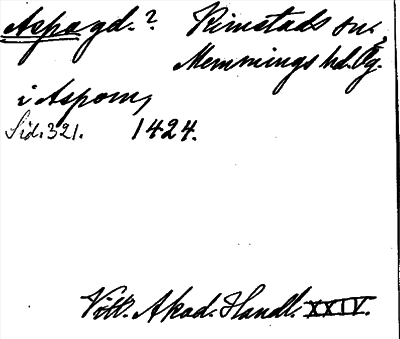 Aspagd.? Rimstads sn,
Memmings hd. Ög.
i Aspom,
Sid. 321. 1424.
Vitt. Akad. Handl. XXIV.